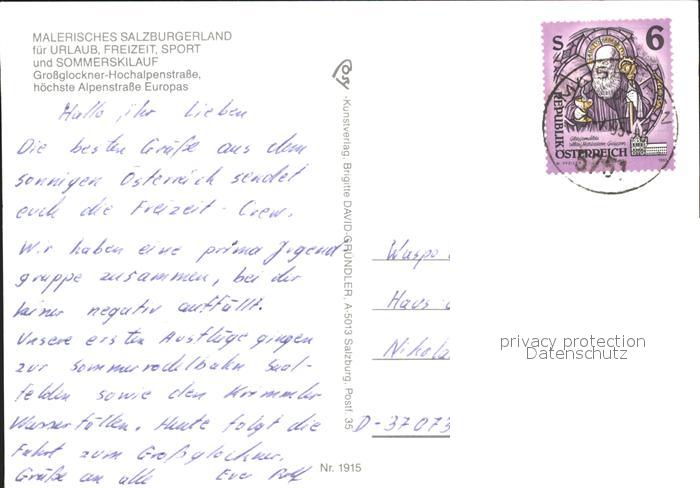 MALERISCHES SALZBURGERLAND
für URLAUB, FREIZEIT, SPORT
und SOMMERSKILAUF
Großglockner-Hochalpenstraße,
höchste Alpenstraße Europas
Hallo ihr Lieben
Die besten Grüße aus dem
sonnigen Österreich sendet
euch die Freizeit-Crew.
Wir haben eine prima Jugend
gruppe zusammen, bei der
keiner negativ auffällt.
Unsere ersten Ausflüge gingen
zur Sommerrodelbahn Saal-
felden sowie den Krimmler
Wasserfällen. Heute folgt die
Fahrt zum Großglockner.
Grüße an alle Euer Rolf
Kunstverlag, Brigitte DAVID-GRÜNDLER, A-5013 Salzburg, Postf. 35
Nr. 1915
S 6
REPUBLIK
ÖSTERREICH
5751
Waspo
Haus
Nikola
D-37073
privacy protection
Datenschutz